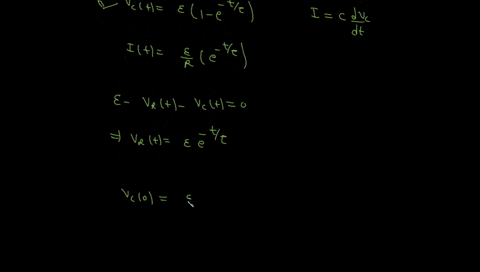 V_c(t) = ε (1 - e^{-t/τ})
I = C dV_c/dt
I(t) = ε/R (e^{-t/τ})
ε - V_R(t) - V_c(t) = 0
⇒ V_R(t) = ε e^{-t/τ}
V_c(0) = ε